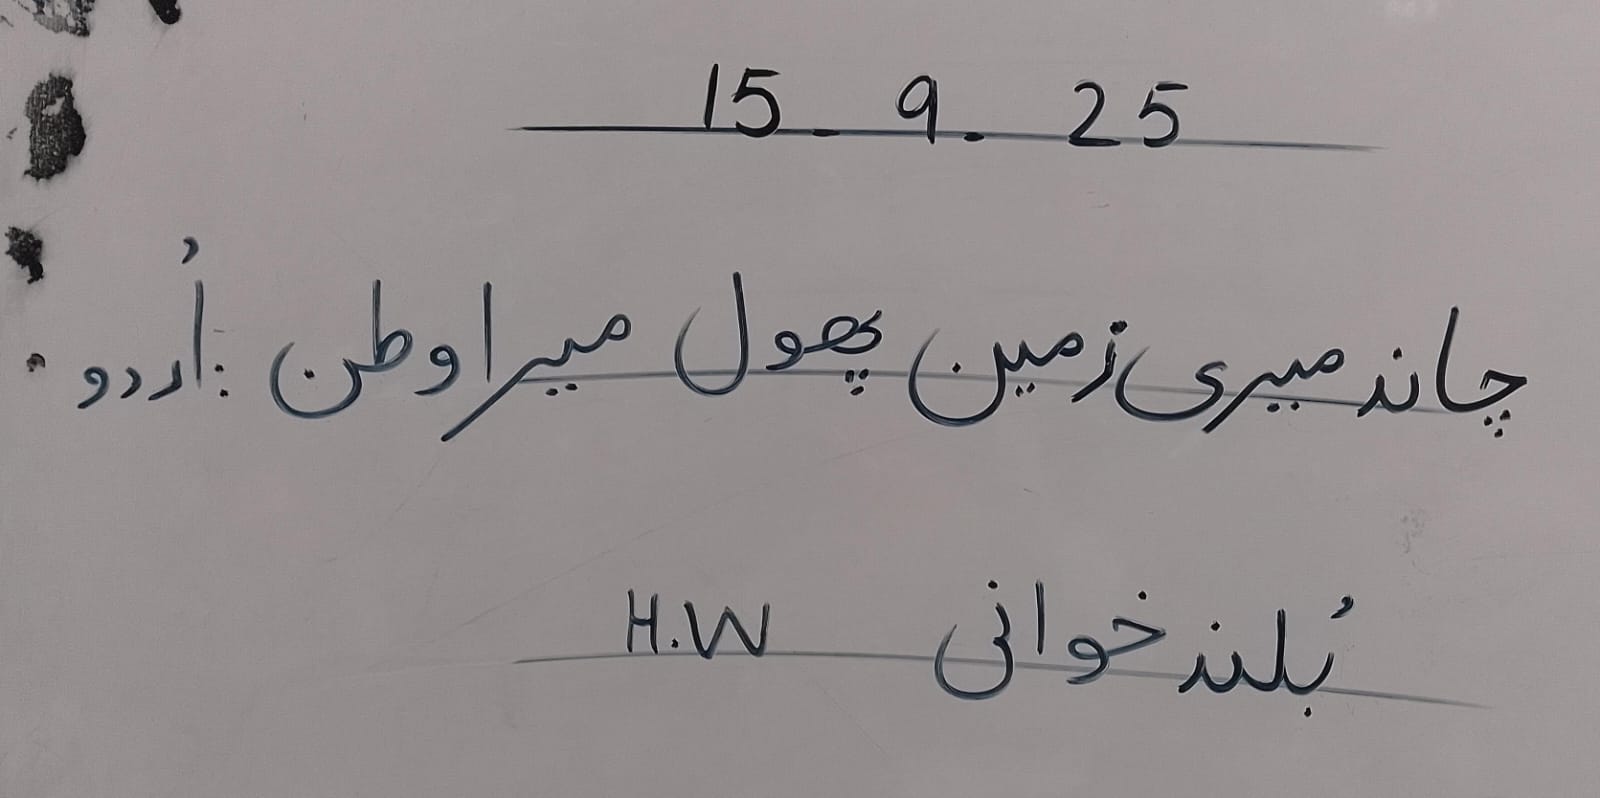 15 - 9 - 25
چاند میری زمین پھول میرا وطن :اُردو
بُلند خوانی H.W